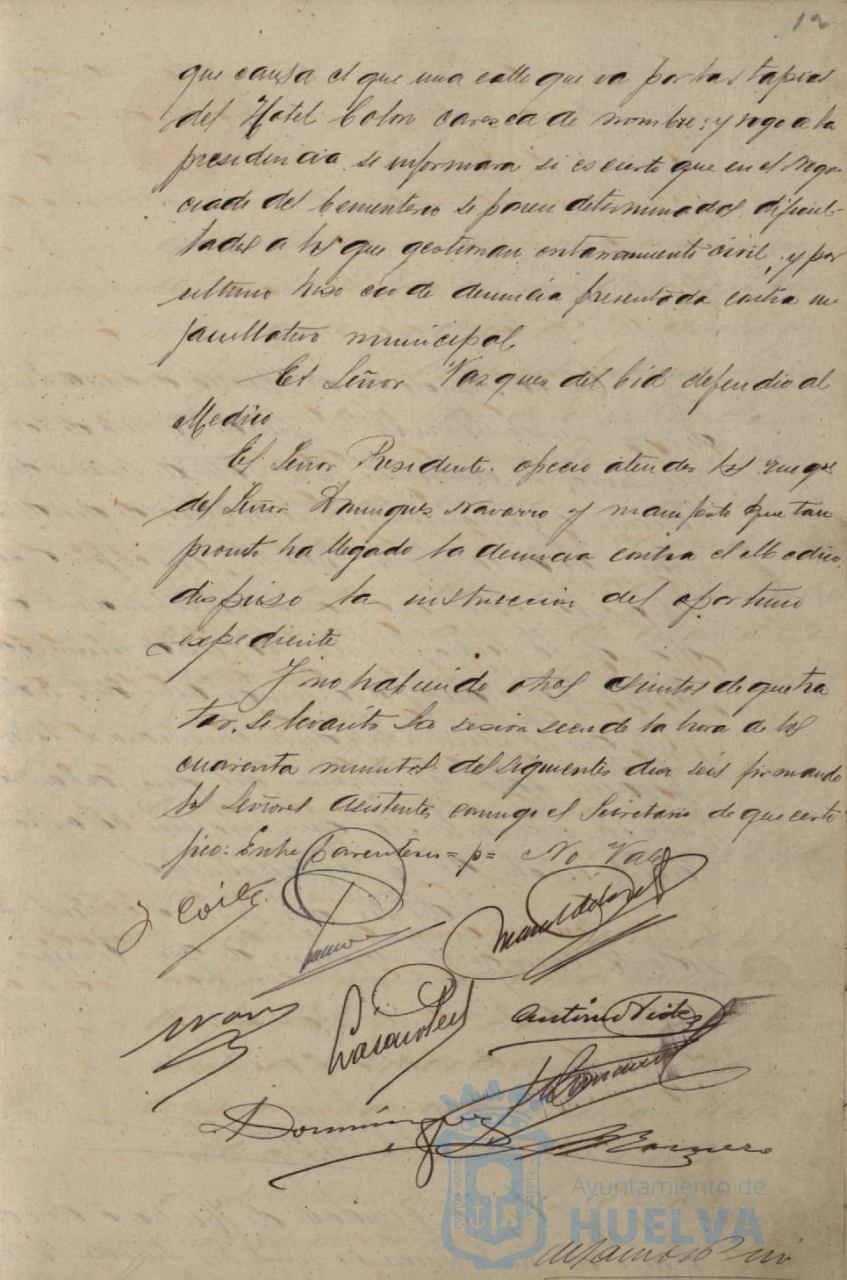 12
que causa el que una calle que va por las tapias
del Hotel Colon caresca de nombre; y rogo a la
presidencia se informara si es cierto que en el Nego-
ciado del Cementerio se ponen determinadas dificul-
tades a los que gestionan enterramiento civil, y por
ultimo hiso eco de denuncia presentada contra un
facultativo municipal
El Señor Vazquez del Cid defendio al
Medico
El Señor Presidente. ofrecio atender los ruegos
del Señor Dominguez Navarro y manifesto que tan
pronto ha llegado la denuncia contra el Medico,
dispuso la instruccion del oportuno
expediente
Y no habiendo otros asuntos de que tra
tar, se levanto la sesion siendo la hora de las
cuarenta minutos del siguientes dia seis firmando
los Señores Asistentes conmigo el Secretario de que certi
fico: Entre parentesis = p = No Vale
Manuel
Antonio
Dominguez
Romero
Ayuntamiento de
HUELVA